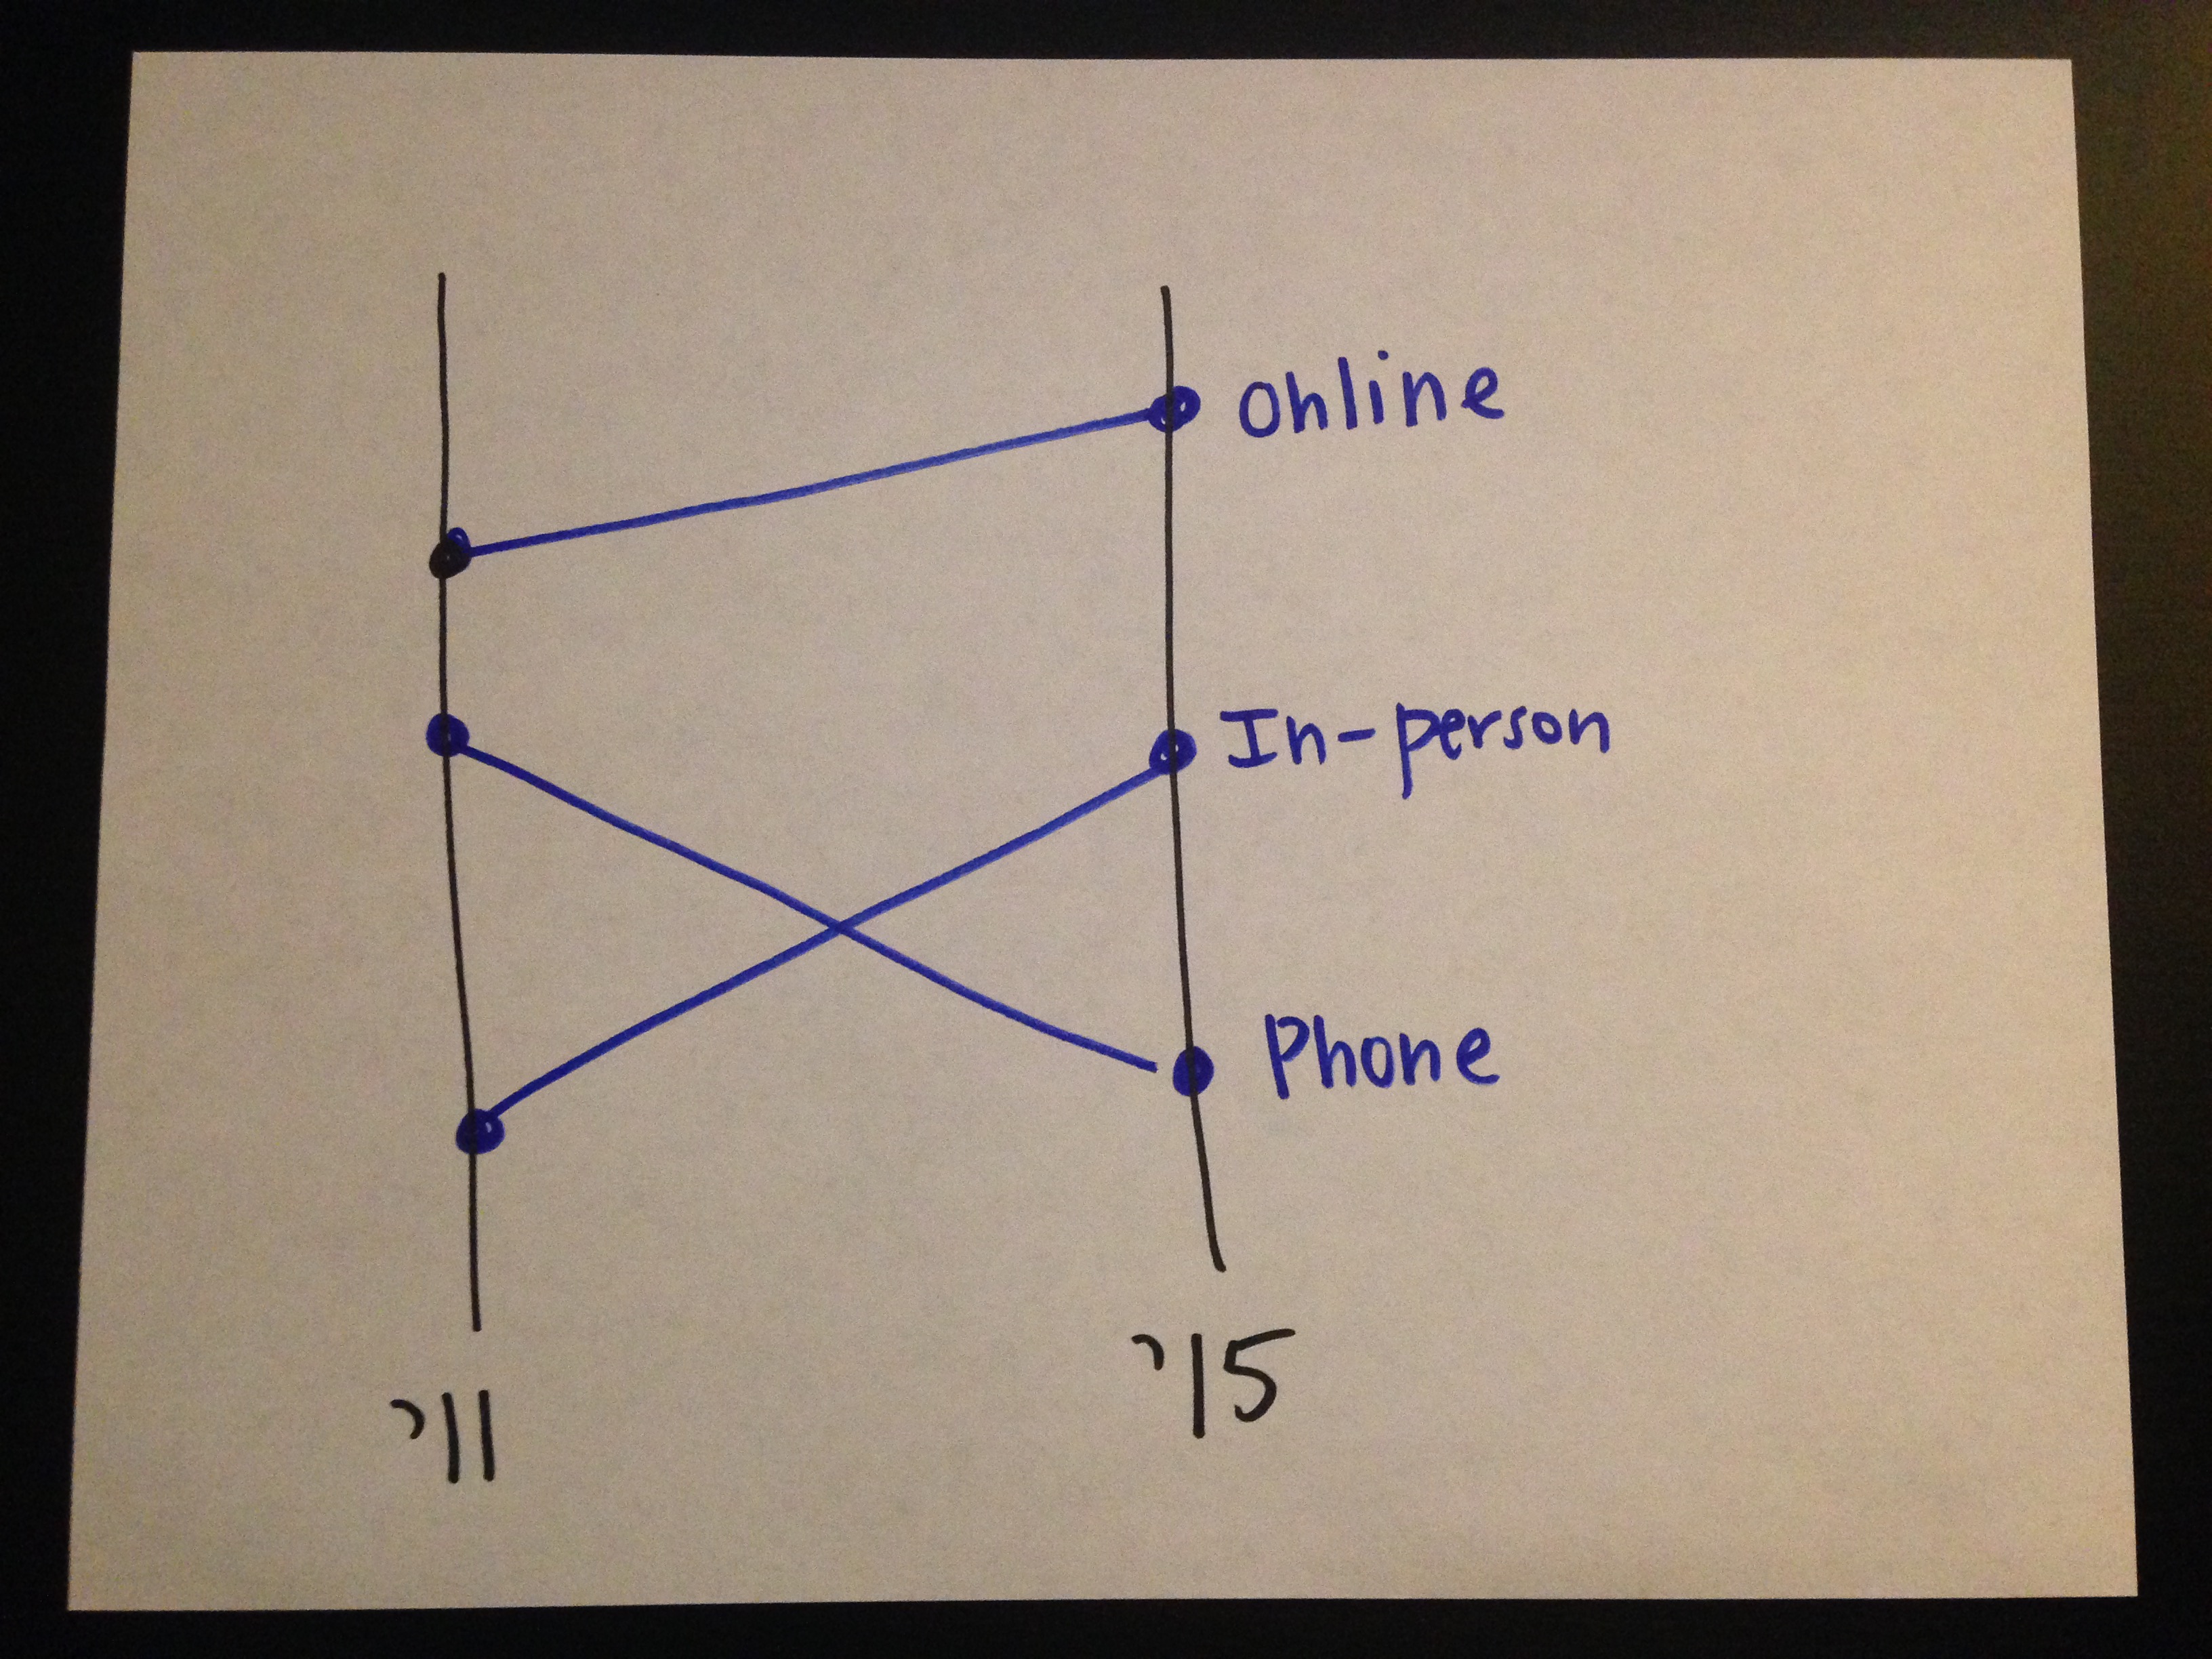 Online
In-person
Phone
'11
'15